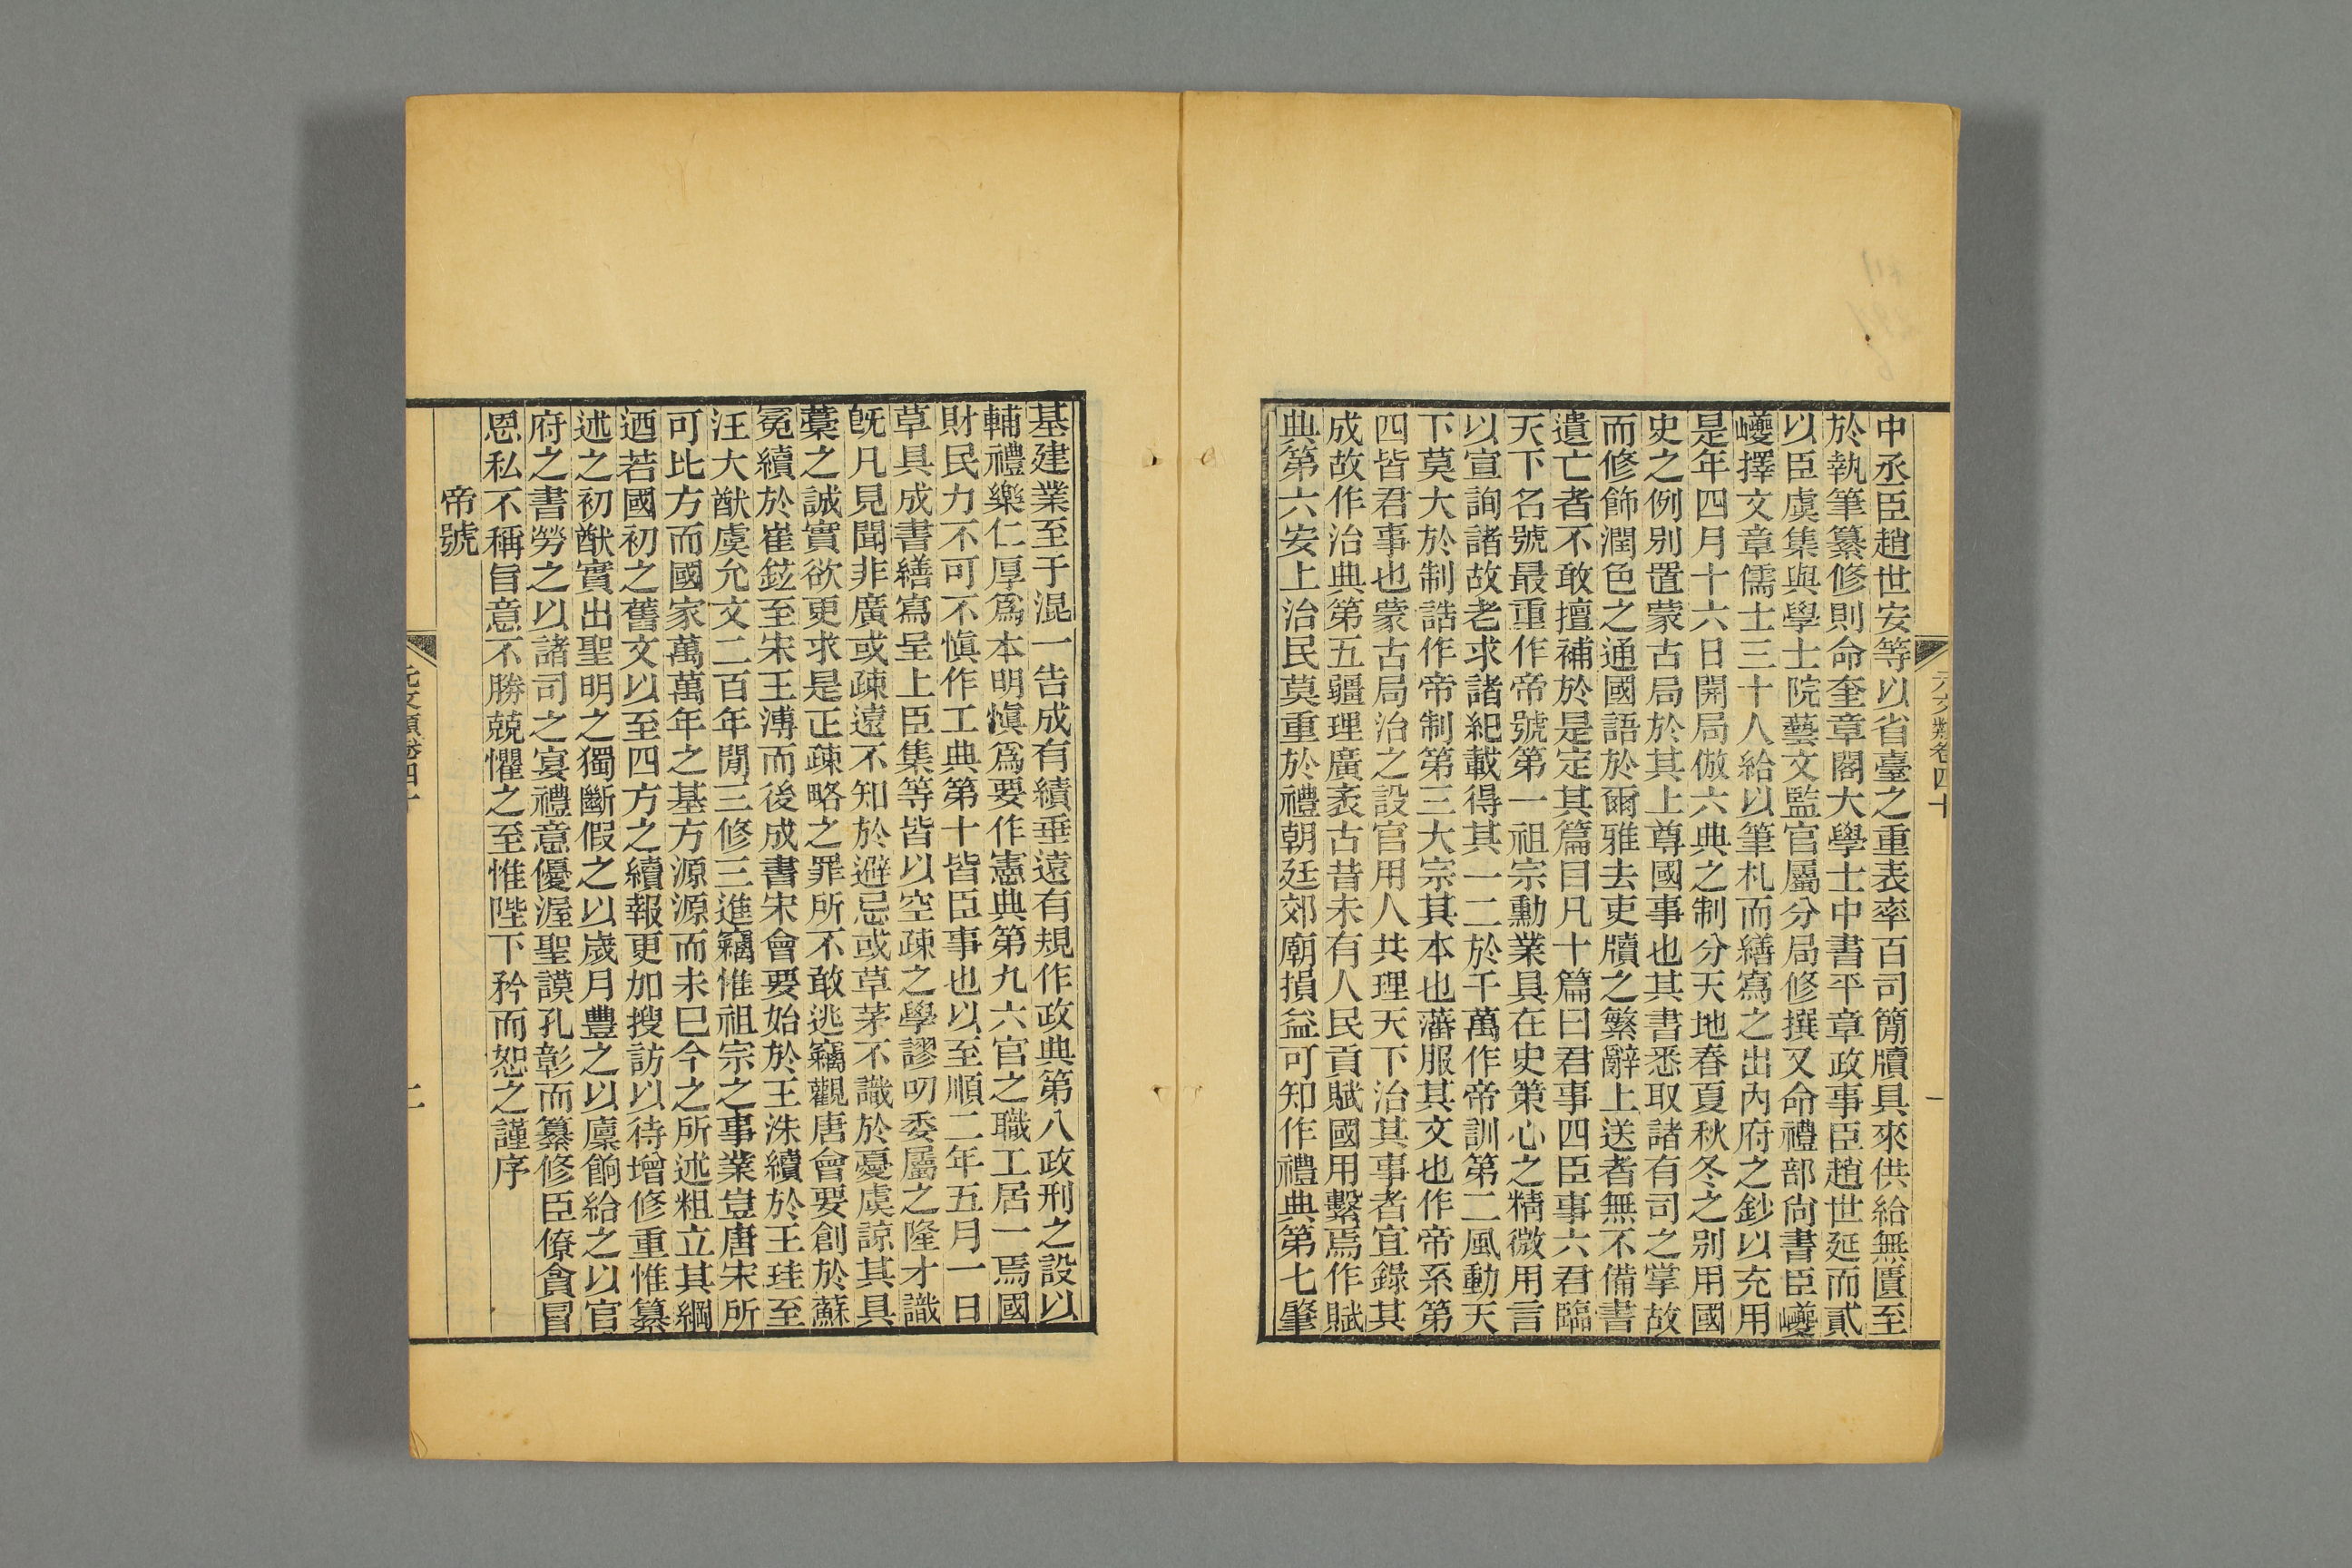 中丞臣趙世安等以省臺之重表率百司簡牘具來供給無匱至
於執筆纂修則命奎章閣大學士中書平章政事臣趙世延而貳
以臣虞集與學士院藝文監官屬分局修撰又命禮部尙書臣巙
巙擇文章儒士三十人給以筆札而繕寫之出內府之鈔以充用
是年四月十六日開局倣六典之制分天地春夏秋冬之别用國
史之例别置蒙古局於其上尊國事也其書悉取諸有司之掌故
而修飾潤色之通國語於爾雅去吏牘之繁辭上送者無不備書
遺亡者不敢擅補於是定其篇目凡十篇曰君事四臣事六君臨
天下名號最重作帝號第一祖宗勳業具在史策心之精微用言
以宣詢諸故老求諸紀載得其一二於千萬作帝訓第二風動天
下莫大於制誥作帝制第三大宗其本也藩服其文也作帝系第
四皆君事也蒙古局治之設官用人共理天下治其事者宜錄其
成故作治典第五疆理廣袤古昔未有人民貢賦國用繫焉作賦
典第六安上治民莫重於禮朝廷郊廟損益可知作禮典第七肇
基建業至于混一告成有績垂遠有規作政典第八政刑之設以
輔禮樂仁厚爲本明愼爲要作憲典第九六官之職工居一焉國
財民力不可不愼作工典第十皆臣事也以至順二年五月一日
草具成書繕寫呈上臣集等皆以空疎之學謬叨委屬之隆才識
旣凡見聞非廣或疎遠不知於避忌或草茅不識於憂虞諒其具
藁之誠實欲更求是正疎略之罪所不敢逃竊觀唐會要創於蘇
冕續於崔鉉至宋王溥而後成書宋會要始於王洙續於王珪至
汪大猷虞允文二百年間三修三進竊惟祖宗之事業豈唐宋所
可比方而國家萬萬年之基方源源而未巳今之所述粗立其綱
迺若國初之舊文以至四方之續報更加搜訪以待增修重惟纂
述之初猷實出聖明之獨斷假之以歲月豐之以廩餉給之以官
府之書勞之以諸司之宴禮意優渥聖謨孔彰而纂修臣僚貪冒
恩私不稱旨意不勝兢懼之至惟陛下矜而恕之謹序
帝號